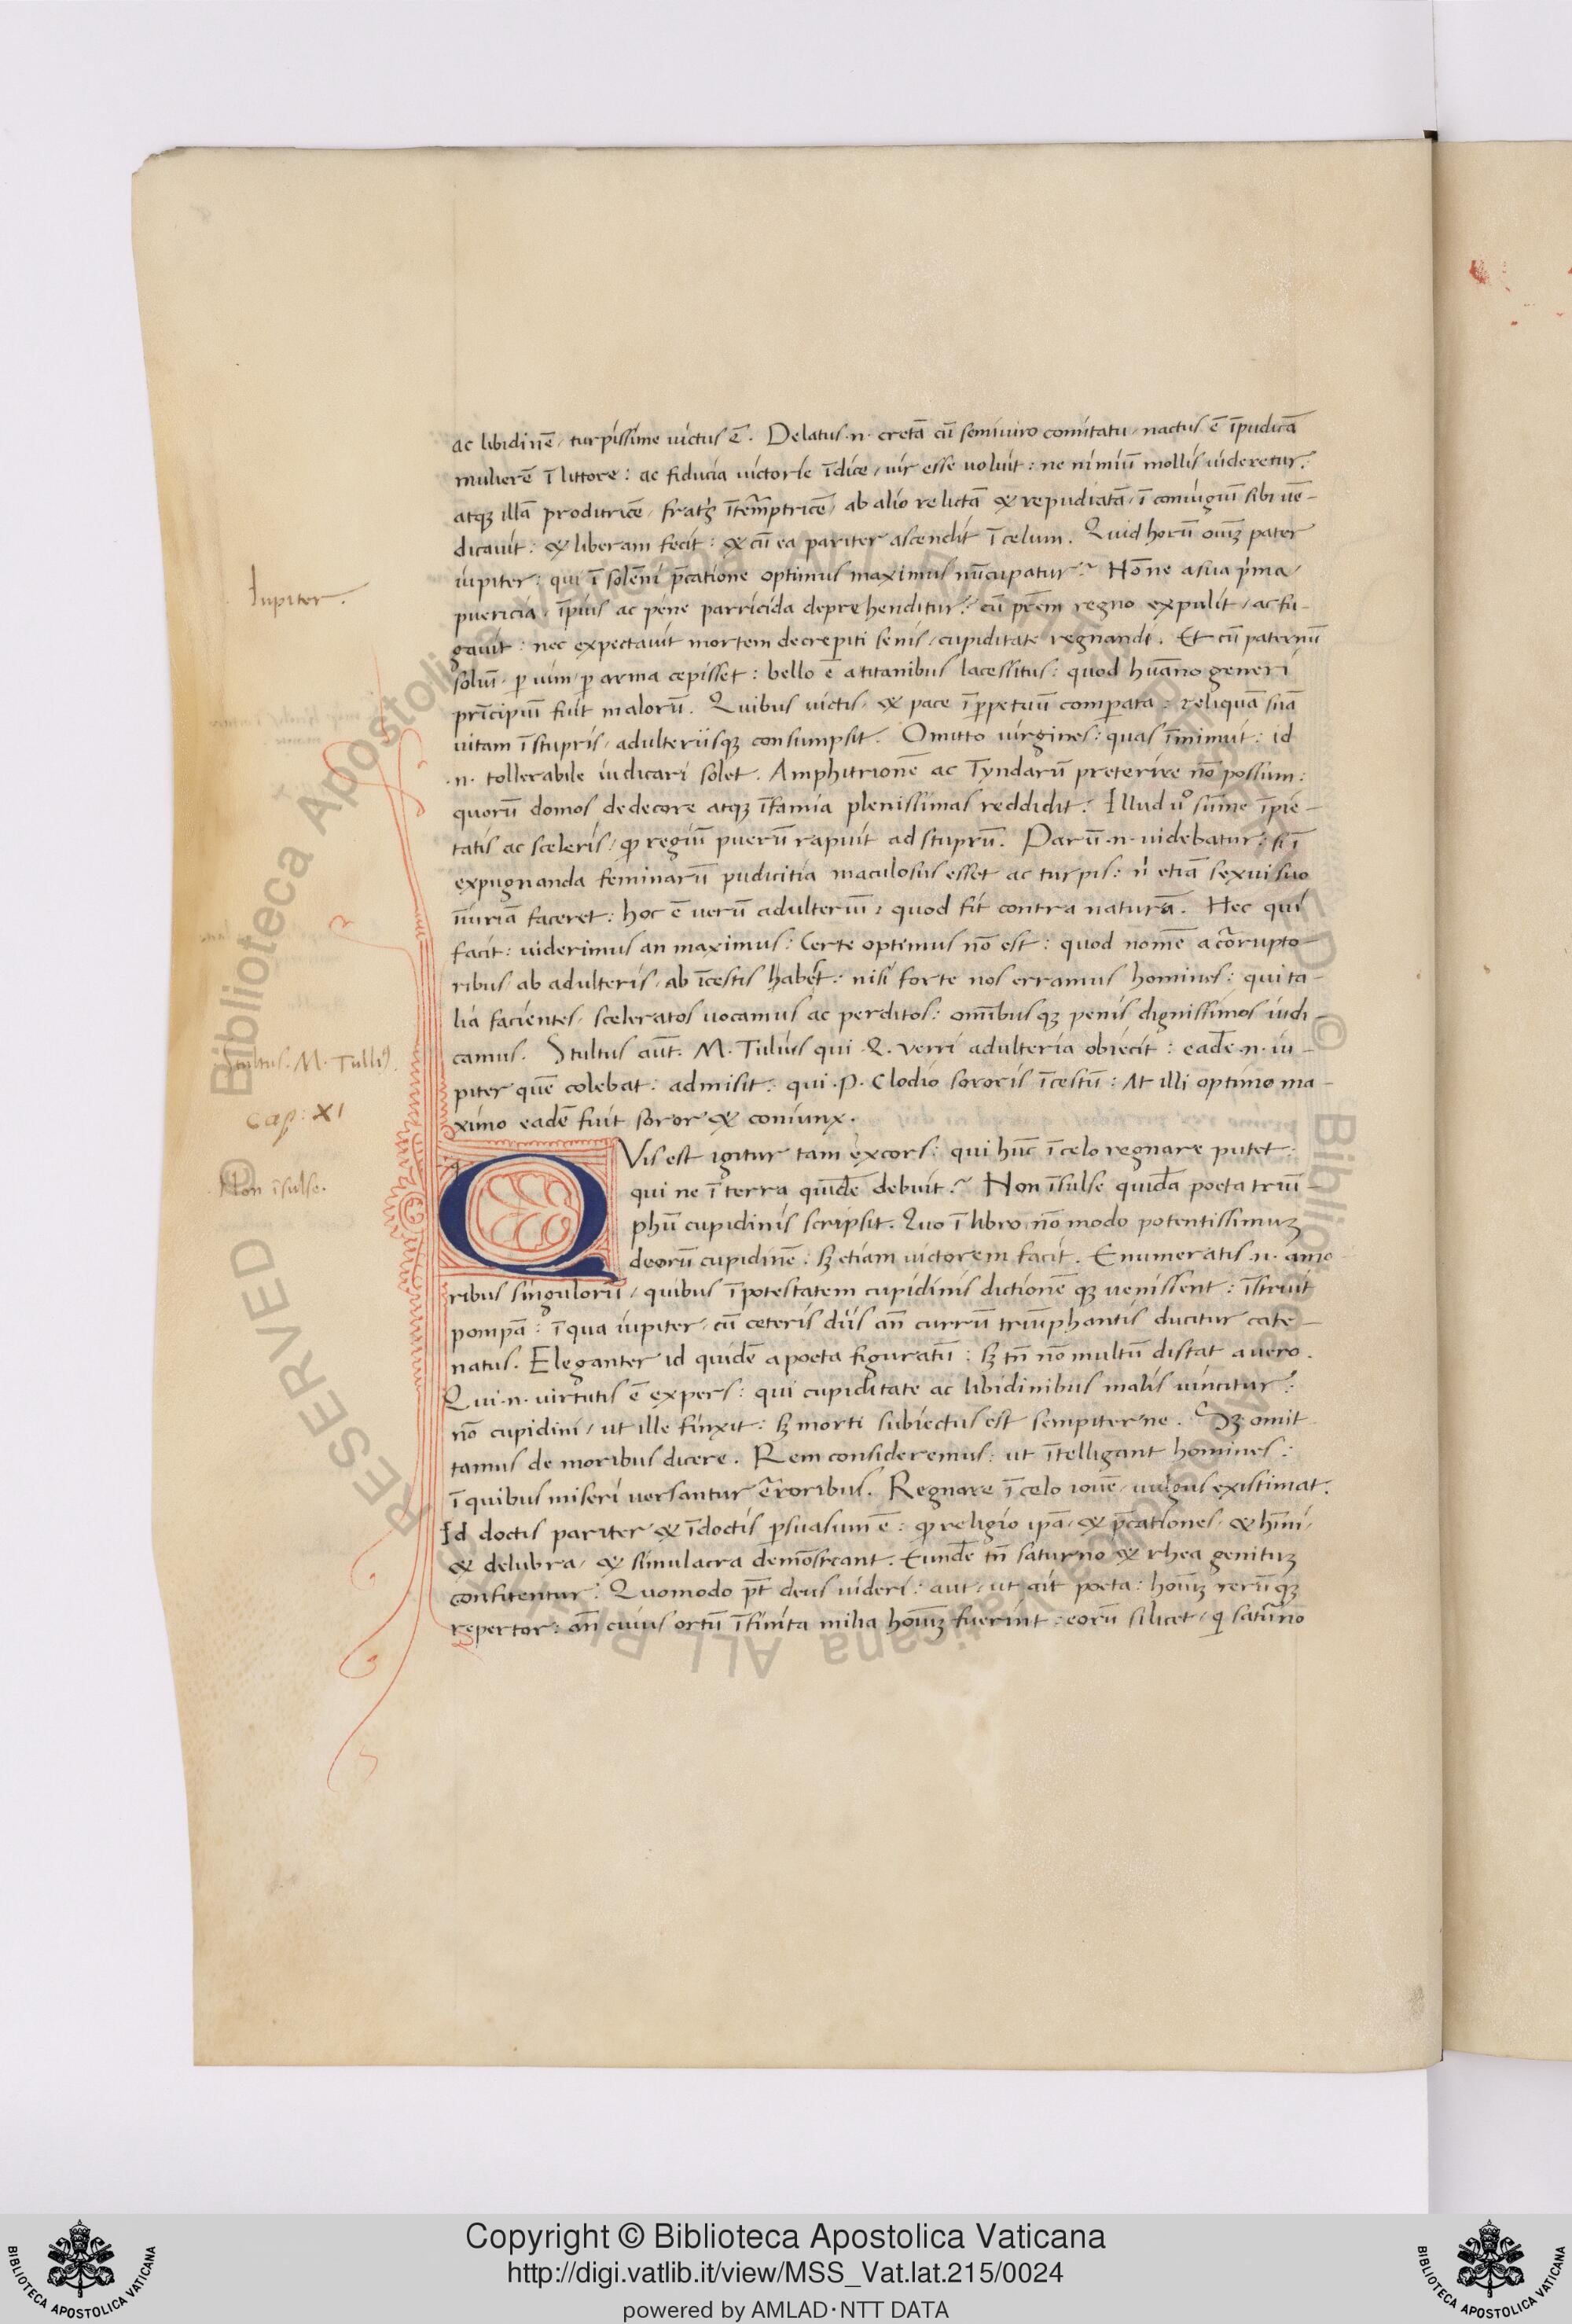 ac libidinē, turpissime victus ē. Delatus .n. cretā cū semiviro comitatu, nactus ē īpudicā
mulierē ī littore: ac fiducia victorie īdice, vir esse voluit: ne nimiū mollis videretur:
atqꝫ illā proditricē, īterēptricē, ab alio relictā & repudiatā, ī coniugiū sibi vē-
dicavit: & liberam fecit: & cū ea pariter ascendit ī celum. Quid horū oīuꝫ pater
iupiter: qui ī solēni p̄catione optimus maximus nūcupatur? Nōne a sua pͥma,
puericia, īpius ac pene parricida deprehenditur: cū pr̄em regno expulit, ac fu-
gavit: nec expectavit mortem decrepiti senis, cupiditate regnandi. Et cū paternū
soluī, ꝑ vim, ꝑ arma cepisset: bello ē a titanibus lacessitus: quod hūano generi
prīcipiū fuit malorū. Quibus victis, & pace ī ꝑpetuū comparata: reliquā suā
vitam ī stupris, adulteriisqꝫ consumpsit. Omitto virgines: quas īminuit: id
.n. tollerabile iudicari solet. Amphitrionē ac Tyndarū preterire nō possum:
quorū domos dedecore atqꝫ īfamia plenissimas reddidit. Illud vͦ sūme īpie-
tatis ac sceleris, ꝙ regiū puerū rapuit ad stuprū. Parū .n. videbatur: si ī
expugnanda feminarū pudicitia maculosus esset ac turpis: nͥ etiā sexui suo
iniuriā faceret: hoc ē verū adulteriū: quod fit contra naturā. Hec qui
facit: viderimus an maximus: Certe optimus nō est: quod nomē a corrupto-
ribus, ab adulteris, ab īcestis habet: nisi forte nos erramus homines: qui ta-
lia facientes, sceleratos vocamus ac perditos: omībusqꝫ penis dignissimos iudi-
camus. Stultus aūt. M. Tulius qui .Q. verri adulteria obiecit: eadē .n. iu-
piter quē colebat: admisit: qui .P. Clodio sororis īcestū: At illi optimo ma-
ximo eadē fuit soror & coniunx.
Iupiter.
Stultus. M. Tulliꝰ.
Cap: XI
Non īsulse.
QVis est igitur tam excors: qui hūc ī celo regnare putet:
qui ne ī terra quidē debuit? Non īsulse quidā poeta triū-
phū cupidinis scripsit. Quo ī libro nō modo potentissimuꝫ
deorū cupidinē: sꝫ etiam victorem facit. Enumeratis .n. amo-
ribus singulorū, quibus ī potestatem cupidinis dictionē qꝫ venissent: īstruit
pompā: ī qua iupiter, cū ceteris diis añ currū triūphantis ducitur cate-
natus. Eleganter id quidē a poeta figuratū: sꝫ tñ nō multū distat a vero.
Qui .n. virtutis ē expers: qui cupiditate ac libidinibus malis vincitur:
nō cupidini, ut ille finxit: sꝫ morti subiectus est sempiterne. Sꝫ omit
tamus de moribus dicere. Rem consideremus: ut ītelligant homines:
ī quibus miseri versantur erroribus. Regnare ī celo iovē, vulgus existimat.
Id doctis pariter & īdoctis ꝑsuasum ē: ꝙ religio ip̄a, & p̄cationes, & hīni,
& delubra, & simulacra demōstrant. Eundē tñ saturno & rhea genituꝫ
confitentur: Quomodo pt̄ deus videri: aut, ut ait poeta: hoīuꝫ rerūqꝫ
repertor: añ cuius ortū īfinita milia hoīuꝫ fuerint: eorū silicet, qͥ saturno
Copyright © Biblioteca Apostolica Vaticana
http://digi.vatlib.it/view/MSS_Vat.lat.215/0024
powered by AMLAD·NTT DATA
BIBLIOTECA APOSTOLICA VATICANA
BIBLIOTECA APOSTOLICA VATICANA